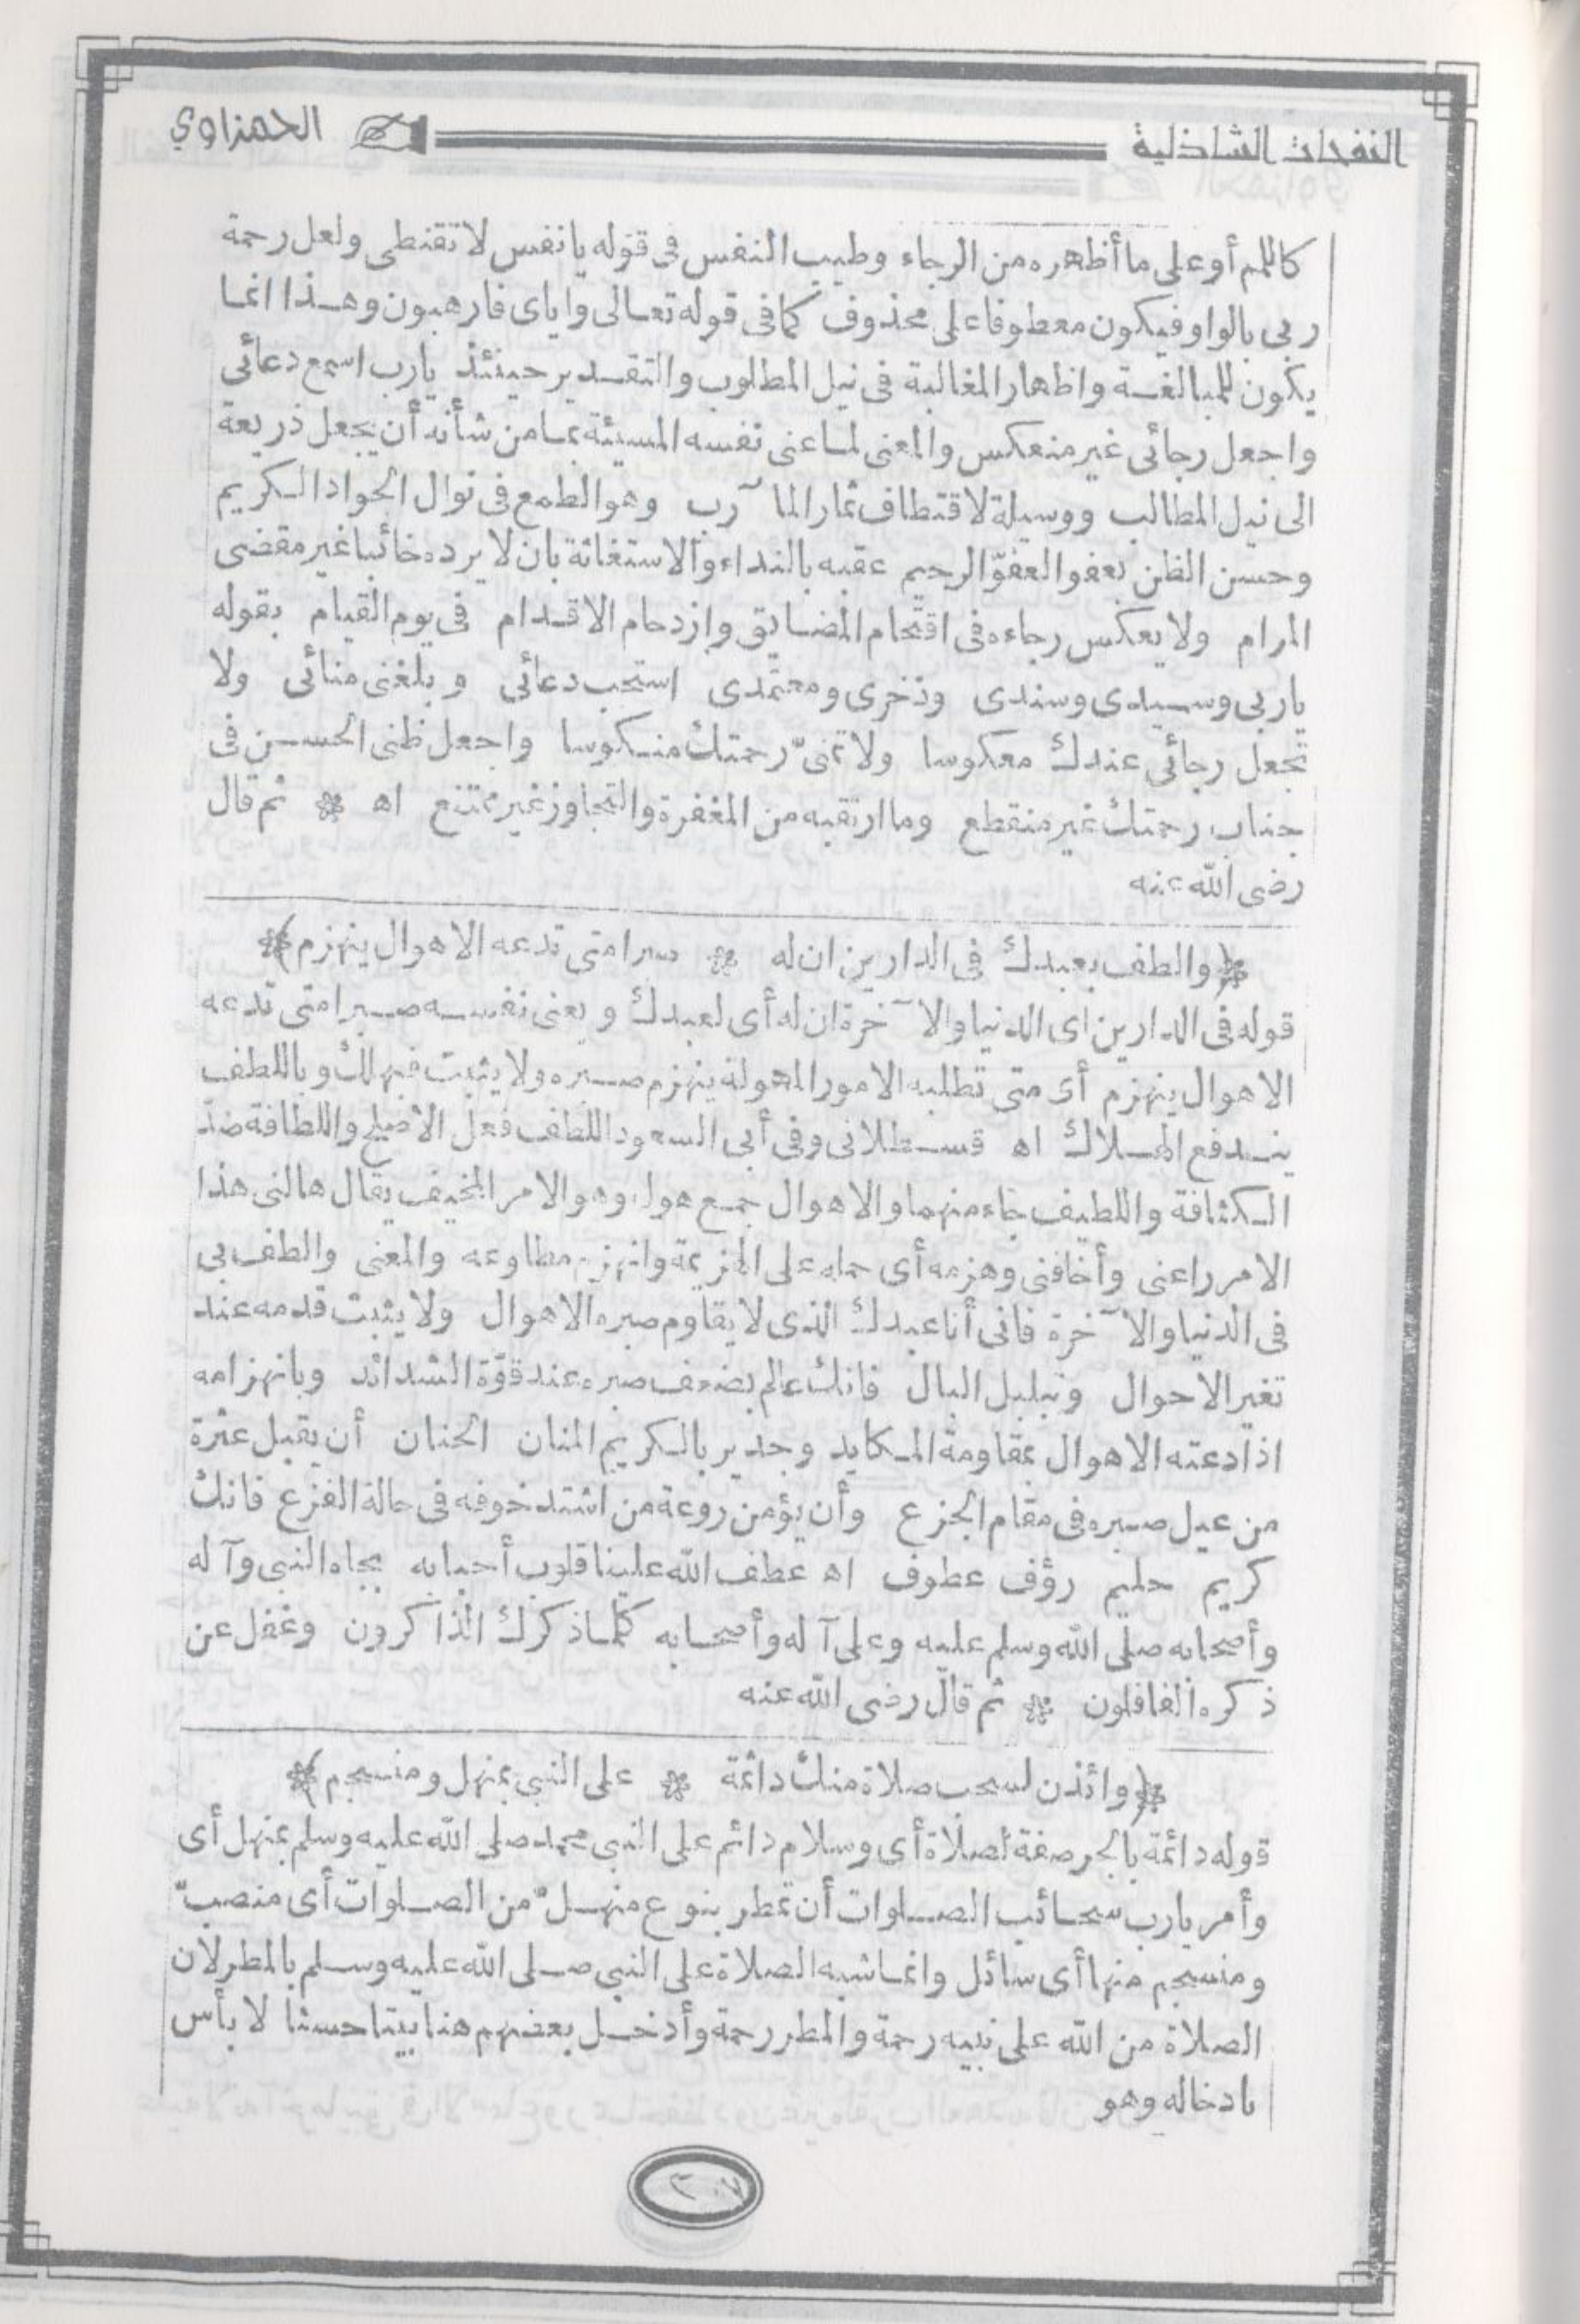 النفحات الشاذلية
الحمزاوي
كاللمم أو على ما أظهره من الرجاء وطيب النفس فى قوله يا نفس لا تقنطى ولعل رحمة
ربى بالواو فيكون معطوفا على محذوف كما فى قوله تعالى واياى فارهبون وهذا انما
يكون للمبالغة واظهار المغالبة فى نيل المطلوب والتقدير حينئذ يارب اسمع دعائى
واجعل رجائى غير منعكس والمعنى لما عنى نفسه المسيئة بما من شأنه أن يجعل ذريعة
الى نيل المطالب ووسيلة لاقتطاف ثمار المآرب وهو الطمع فى نوال الجواد الكريم
وحسن الظن بعفو العفوّ الرحيم عقبه بالنداء والاستغاثة بان لا يرده خائبا غير مقضى
المرام ولا يعكس رجاءه فى اقتحام المضايق وازدحام الاقدام فى يوم القيام بقوله
ياربى وسيدى وسندى وذخرى ومعتمدى استجب دعائى وبلغنى منائى ولا
تجعل رجائى عندك معكوسا ولا تمنىّ رحمتك منكوسا واجعل ظنى الحسن فى
جناب رحمتك غير منقطع وما ارتقبه من المغفرة والتجاوز غير ممتنع اه * ثم قال
رضى الله عنه
﴿والطف بعبدك فى الدارين ان له * صبرا متى تدعه الاهوال ينهزم﴾
قوله فى الدارين أى الدنيا والآخرة ان له أى لعبدك ويعنى نفسه صبرا متى تدعه
الاهوال ينهزم أى متى تطلبه الامور المهولة ينهزم صبره ولا يثبت فيهلك وباللطف
يندفع الهلاك اه قسطلانى وفى أبى السعود اللطف فعل الأصلح واللطافة ضدّ
الكثافة واللطيف جاء منهما والاهوال جمع هول وهو الامر المخيف يقال هالنى هذا
الامر راعنى وأخافنى وهزمه أى حمله على الهزيمة وانهزم مطاوعه والمعنى والطف بى
فى الدنيا والآخرة فانى أنا عبدك الذى لا يقاوم صبره الاهوال ولا يثبت قدمه عند
تغير الاحوال وتبلبل البال فانك عالم بضعف صبره عند قوّة الشدائد وبانهزامه
اذا دعته الاهوال بمقاومة المكايد وجدير بالكريم المنان الحنان أن يقبل عثرة
من عيل صبره فى مقام الجزع وأن يؤمن روعة من اشتد خوفه فى حالة الفزع فانك
كريم حليم رؤف عطوف اه عطف الله علينا قلوب أحبابه بجاه النبى وآله
وأصحابه صلى الله وسلم عليه وعلى آله وأصحابه كلما ذكرك الذاكرون وغفل عن
ذكره الغافلون * ثم قال رضى الله عنه
﴿وائذن لسحب صلاة منك دائمة * على النبى بمنهل ومنسجم﴾
قوله دائمة بالجر صفة لصلاة أى وسلام دائم على النبى محمد صلى الله عليه وسلم بمنهل أى
وأمر يارب سحائب الصلوات أن تمطر بنوع منهلّ من الصلوات أى منصبّ
ومنسجم منها أى سائل وانما شبه الصلاة على النبى صلى الله عليه وسلم بالمطر لان
الصلاة من الله على نبيه رحمة والمطر رحمة وأدخل بعضهم هنا بيتا حسنا لا بأس
بادخاله وهو
٢٠٧